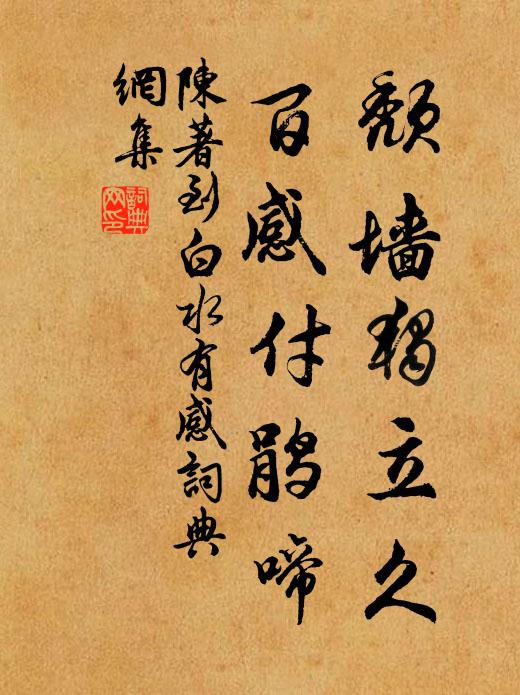 颓墙独立久
百感付鹃啼
陳著到白水有感詞典
網集
詞典
网印